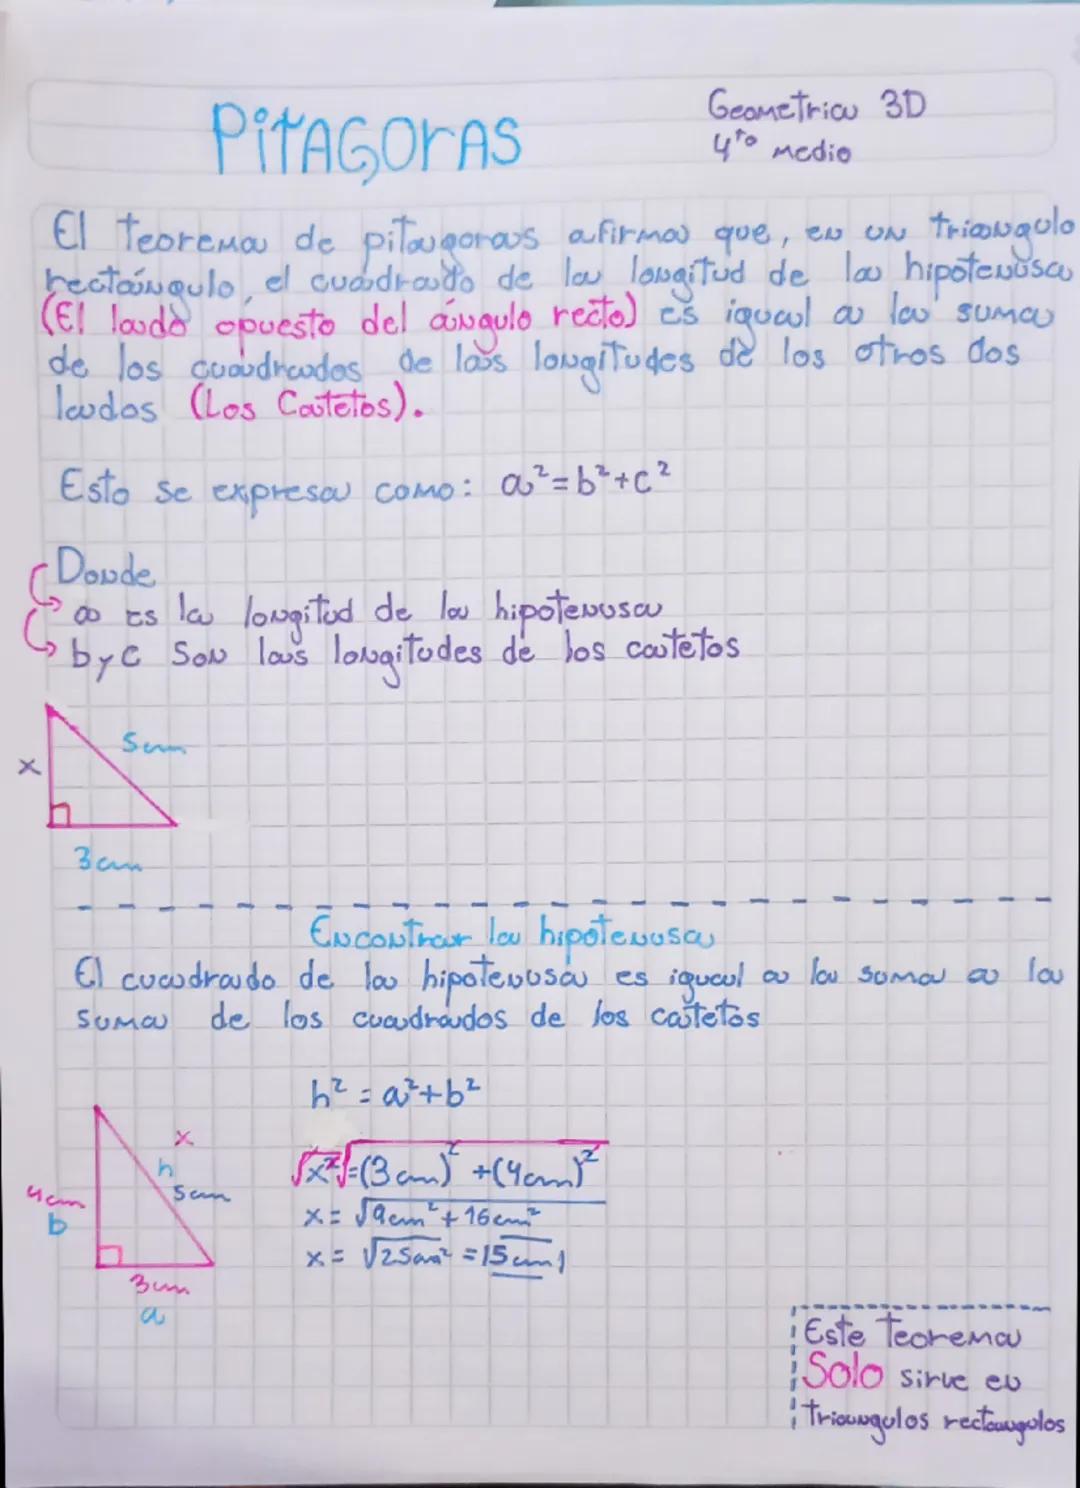 PiTAGOrAS
Geometria 3D
4to medio
El teorema de pitagoras afirma que, en un triangulo
rectángulo, el cuadrado de la longitud de la hipotenusa
(El lado opuesto del ángulo recto) es igual a la suma
de los cuadrados de las longitudes de los otros dos
lados (Los Catetos).
Esto se expresa como: a²=b²+c²
Donde
a es la longitud de la hipotenusa
b y c son las longitudes de los catetos
5cm
x
3cm
Encontrar la hipotenusa
El cuadrado de la hipotenusa es igual a la suma a la
suma de los cuadrados de los catetos
h² = a²+b²
√x²√=(3cm)²+(4cm)²
x= √9cm²+16cm²
x= √25cm² =|5cm|
x
h
5cm
4cm
b
3cm
a
Este teorema
Solo sirve en
triangulos rectangulos